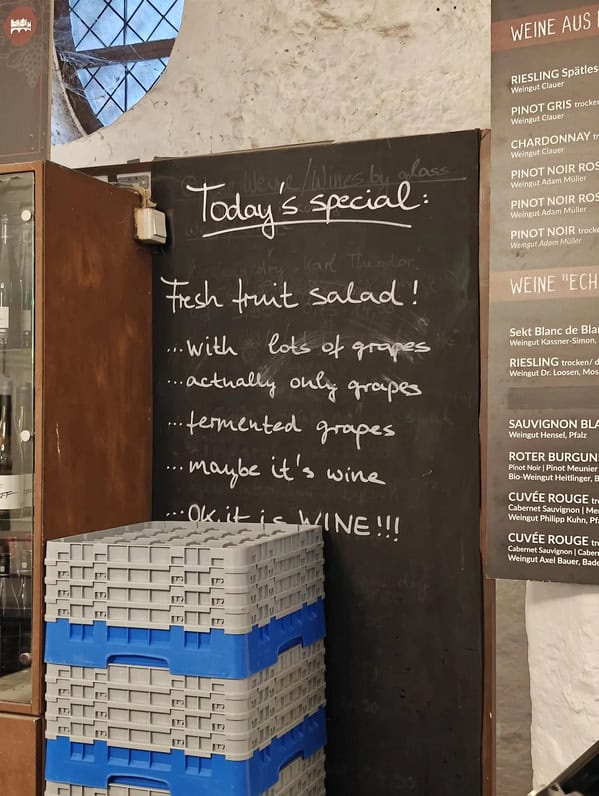 Wines by glass
Today's special:
Fresh fruit salad!
...with lots of grapes
...actually only grapes
...fermented grapes
...maybe it's wine
...OK, it is WINE!!!
WEINE AUS
RIESLING Spätles
Weingut Clauer
PINOT GRIS trocken
Weingut Clauer
CHARDONNAY t
Weingut Clauer
PINOT NOIR ROS
Weingut Adam Müller
PINOT NOIR ROS
Weingut Adam Müller
PINOT NOIR trocke
Weingut Adam Müller
WEINE "ECH
Sekt Blanc de Blan
Weingut Kassner-Simon,
RIESLING trocken/ d
Weingut Dr. Loosen, Mos
SAUVIGNON BLA
Weingut Hensel, Pfalz
ROTER BURGUN
Pinot Noir | Pinot Meunier
Bio-Weingut Heitlinger, B
CUVÉE ROUGE tr
Cabernet Sauvignon | Mer
Weingut Philipp Kuhn, Pf
CUVÉE ROUGE tro
Cabernet Sauvignon | Cabern
Weingut Axel Bauer, Bade